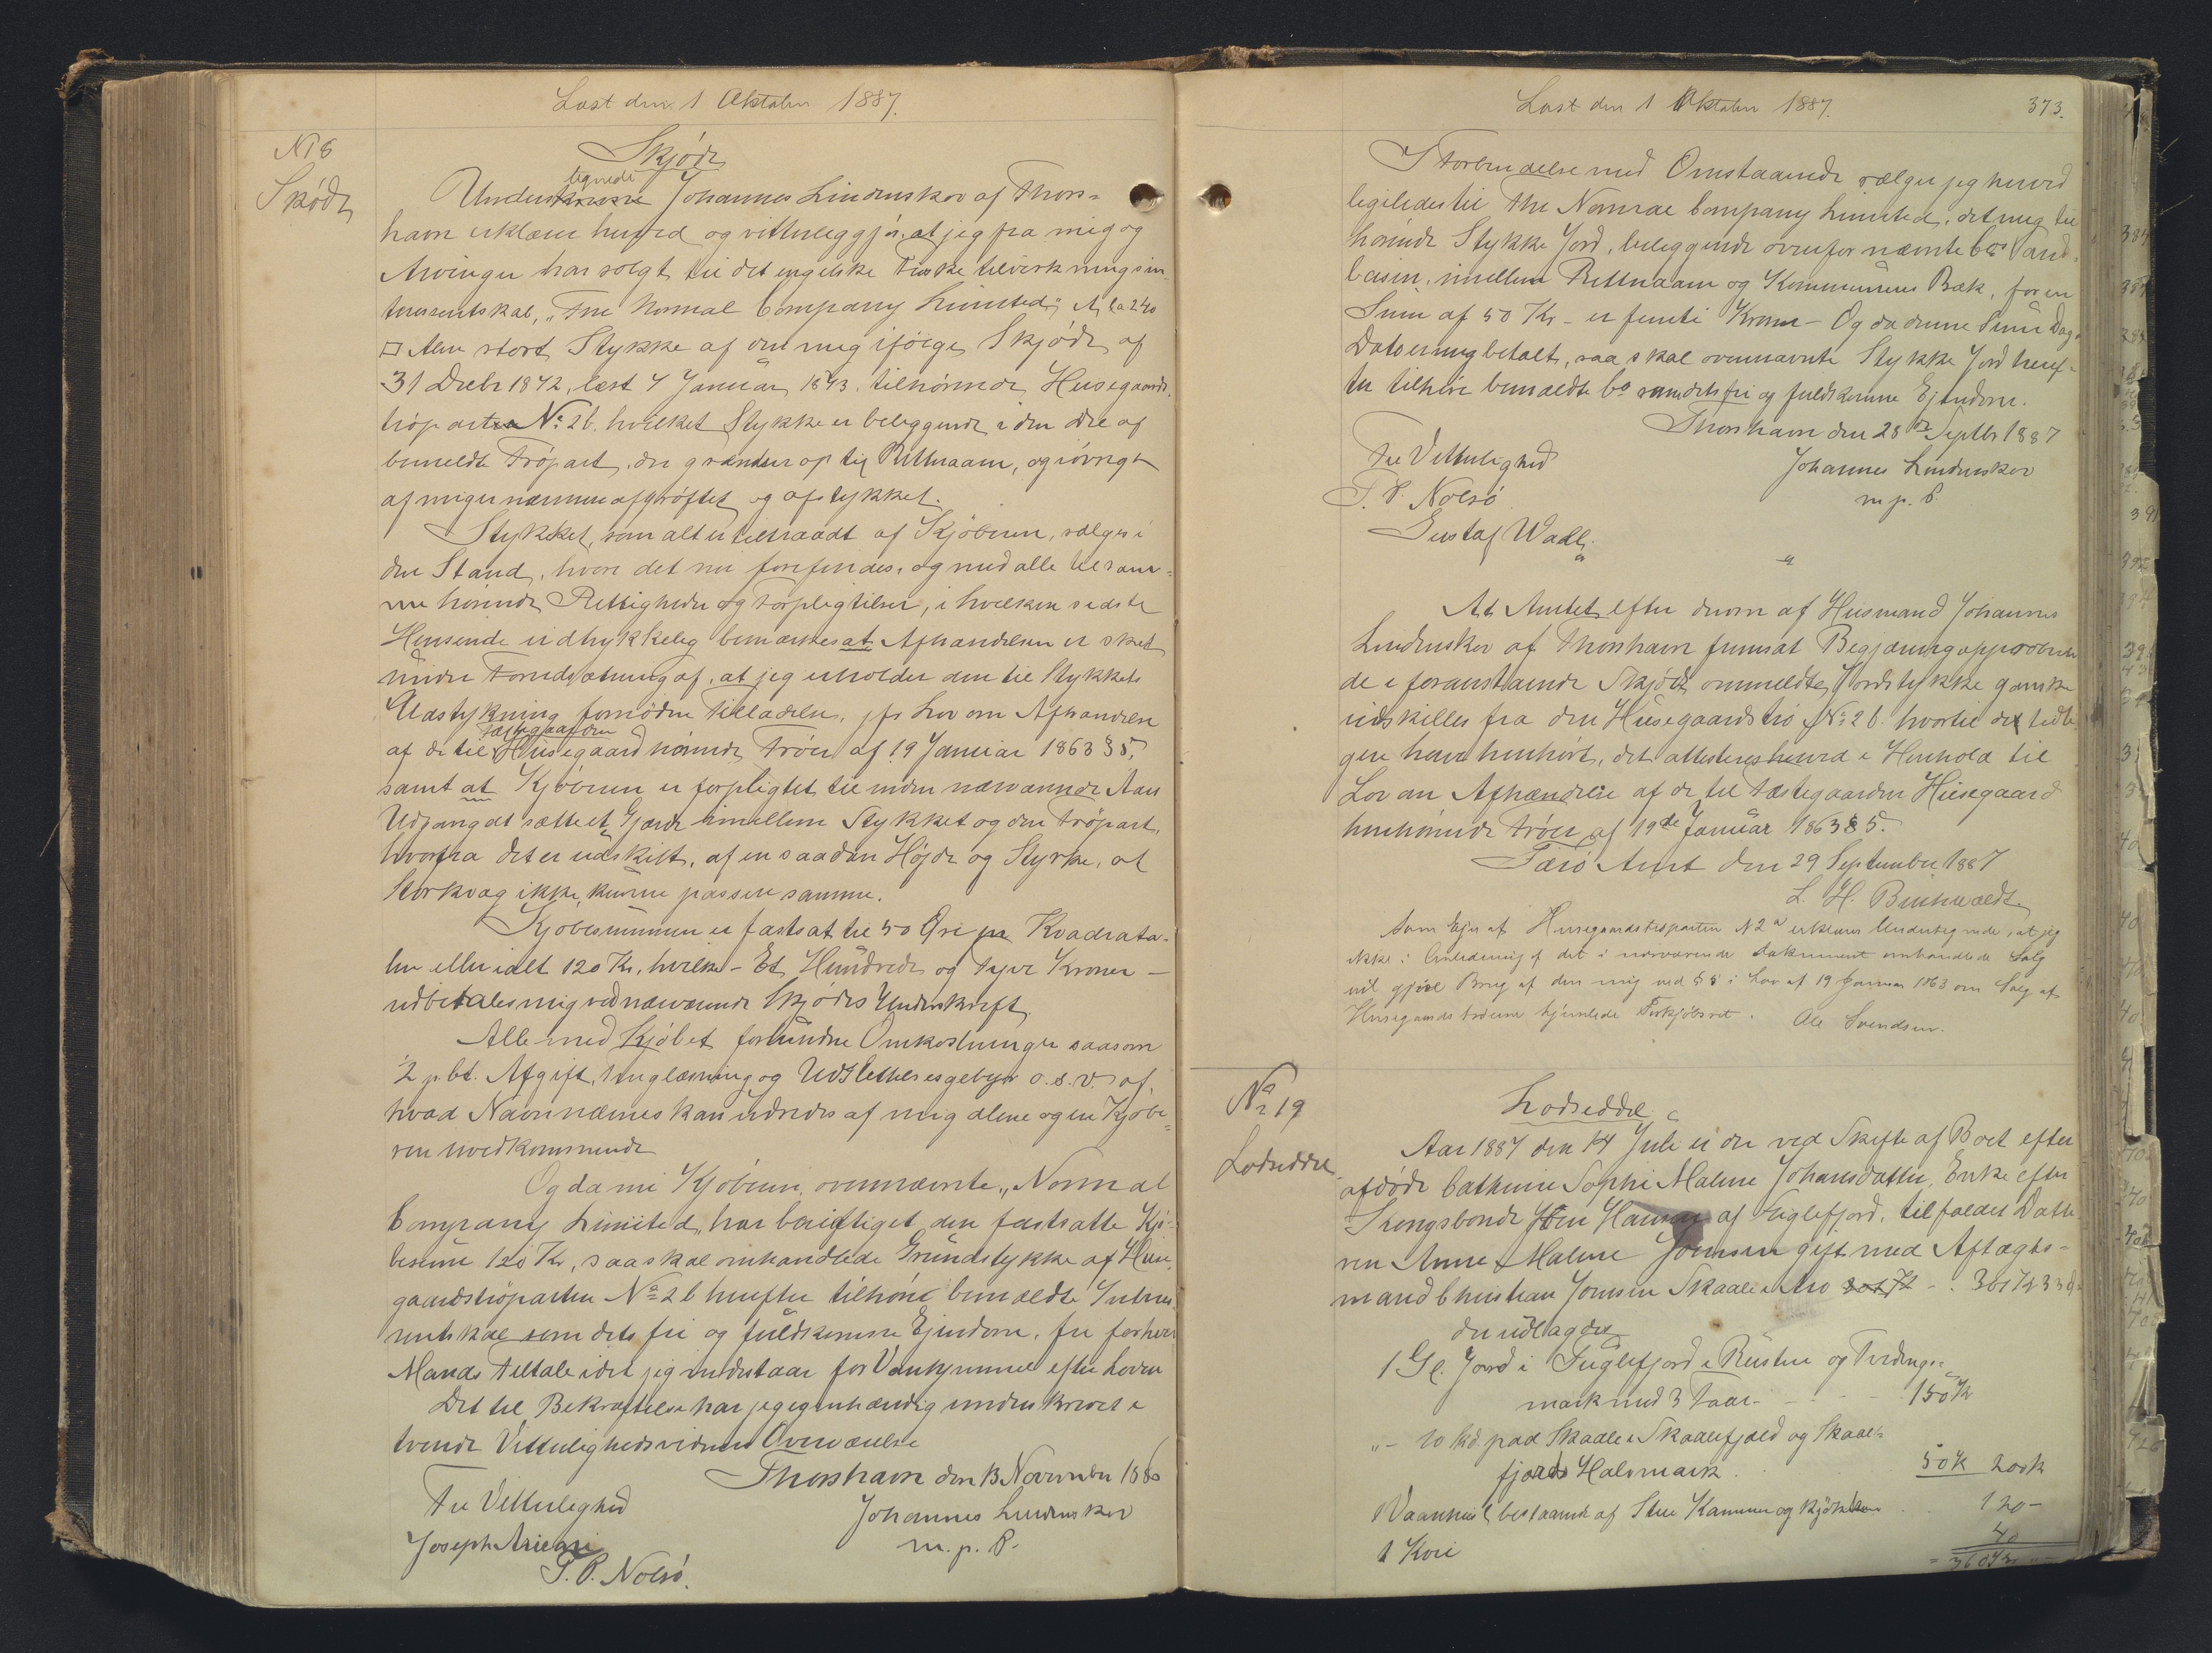 Læst den 1 Oktober 1887.
N 18
Skøde
Skjøde
tegnede
Underskrevne Johannes Lindenskov af Thors-
havn erklærer herved og vitterliggjør, at jeg fra mig og
Arvinger har solgt til det engelske Fisketilvirkningsin-
teressentskab, "The Normal Company Limited", et ca 240
□ Alen stort Stykke af den mig ifølge Skjøde af
31 Decbr 1872, læst 7 Januar 1873, tilhørende Husegaards-
trøpart No 2b. hvilket Stykke er beliggende i den Del af
bemeldte Trøpart, der grændser op til Rættaraa, og iøvrigt
af mig er nærmere afgrøftet og afstykket.
Stykket, som alt er tiltraadt af Kjøberen, sælges i
den Stand, hvori det nu forefindes, og med alle til sam-
me hørende Rettigheder og Forpligtelser, i hvilken sidste
Henseende udtrykkelig bemærkes at Afhændelsen er skeet
under Forudsætning af, at jeg erholder den til Stykkets
Udstykning fornødne Tilladelse, jfr Lov om Afhændelse
fæstegaarden
af de til Husegaard hørende Trøer af 19 Januar 1863 § 5,
samt at Kjøberen er forpligtet til inden nærværende Aars
Udgang at sætte et Gjærde imellem Stykket og den Trøpart,
hvorfra det er udskilt, af en saadan Højde og Styrke, at
Storkvæg ikke kunne passere samme.
Kjøbesummen er fastsat til 50 Øre pr Kvadrata-
len eller ialt 120 Kr, hvilke - Et Hundrede og tyve Kroner -
udbetales mig ved nærværende Skjødes Underskrift.
Alle med Kjøbet forbundne Omkostninger saasom
½ p.Ct. Afgift, Thinglæsning og Udslettelsesgebyr o.s.v. af
hvad Navn nævnes kan udredes af mig alene og ere Kjøbe-
ren uvedkommende
Og da nu Kjøberen, ovennævnte "Normal
Company Limited" har berigtiget den fastsatte Kjø-
besum 120 Kr, saa skal omhandlede Grundstykke af Huse-
gaardstrøparten No 2b herefter tilhøre bemeldte Interes-
sentskab som dets fri og fuldkomne Ejendom, fri for hver
Mands Tiltale idet jeg indestaar for Vanhjemmel efter Loven
Det til Bekræftelse har jeg egenhændig underskrevet i
tvende Vitterlighedsvidners Overværelse
Thorshavn den 13 November 1880
Til Vitterlighed
Johannes Lindenskov
m. p. P.
Joseph
T. P. Nolsø.
Læst den 1 Oktober 1887.
373.
I Forbindelse med Omstaaende sælger jeg herved
ligeledes til The Normal Company Limited, det mig til-
hørende Stykke Jord, beliggende ovenfor nævnte Cos Vand-
basin, imellem Rættaraa og Kommunens Bæk, for en
Sum af 50 Kr - er femti Kroner - Og da denne Sum Dags
Dato er mig betalt, saa skal ovennævnte Stykke Jord heref-
ter tilhøre bemeldte Co som dets fri og fuldkomne Ejendom.
Thorshavn den 28de Septbr 1887
Til Vitterlighed
Johannes Lindenskov
T. P. Nolsø
m. p. P.
Gustaf Wadl
At Amtet efter derom af Husmand Johannes
Lindenskov af Thorshavn fremsat Begjæring approbere
de i foranstaaende Skjøde ommeldte Jordstykke ganske
udskilles fra den Husegaardstrø No 2b. hvortil det tidli-
gere have henhørt, det attesteres herved i Henhold til
Lov om Afhændelse af de til Fæstegaarden Husegaard
henhørende Trøer af 19de Januar 1863 § 5.
Færø Amt den 29 September 1887
L. H. Buchwaldt.
Som Ejer af Husegaardstrøparten N 2a erklærer Undertegnede, at jeg
ikke i Anledning af det i nærværende Dokument omhandlede Salg
vil gjøre Brug af den mig ved § 5 i Lov af 19 Januar 1863 om Salg af
Husegaardstrøerne hjemlede Forkjøbsret. Ole Svendsen.
No 19
Lodseddel
Lodseddel
Aar 1887 den 14 Juli er der ved Skifte af Boet efter
afdøde Cathrine Sophie Malene Johansdatter, Enke efter
Kongsbonde Jøen Hansen af Fuglefjord, tilfaldet Datte-
ren Anne Malene Joensen gift med Aftægts-
mand Christian Joensen Skaale Arv 361 Kr 33 Ø
der udlagdes
1 Gl. Jord i Fuglefjord i Rusten og Tvedinge-
mark med 3 Faar - - - 150 Kr
"- 10 Sk. paa Skaale i Skaalefjeld og Skaale-
fjords Halvmark . 50 K 200 K
1 Vaanhus bestaaende af Stue Kammer og Kjøkken . 120 -
1 Koe 40
= 360 Kr